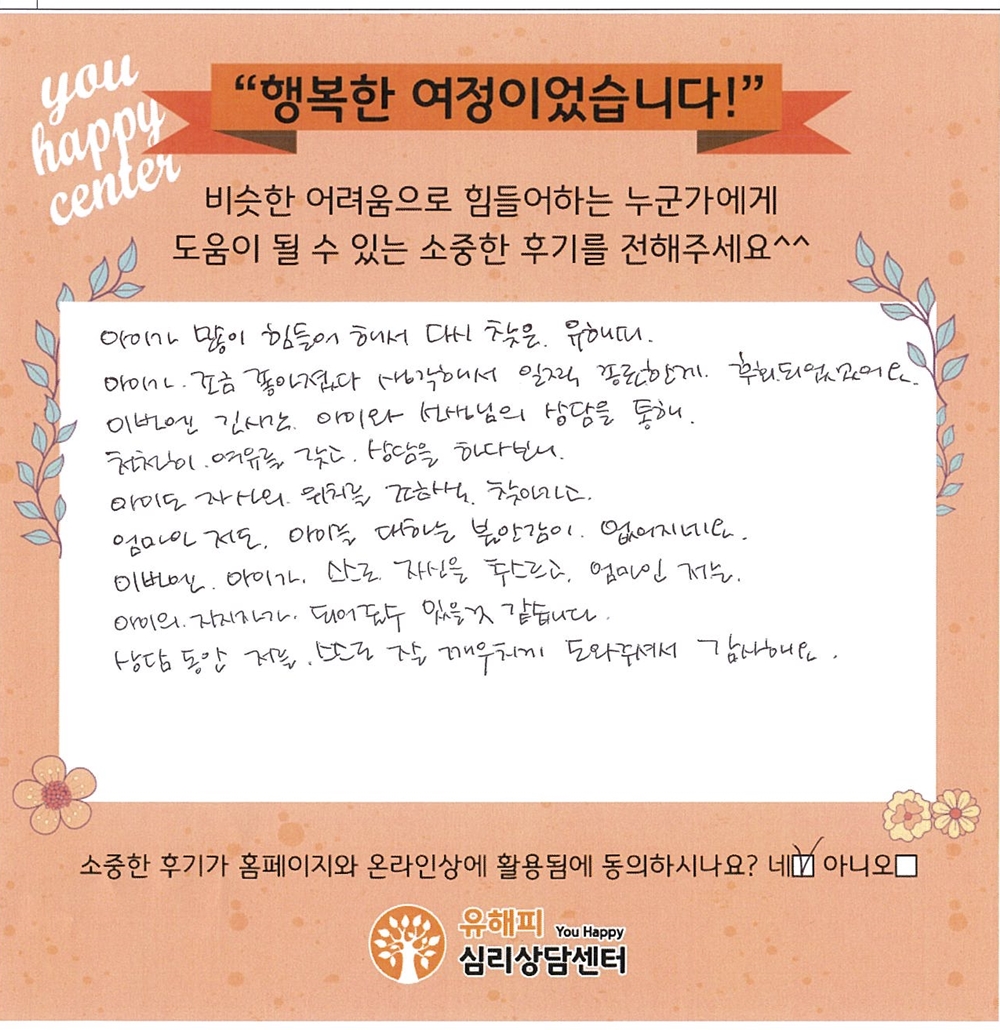 you
happy
center
“행복한 여정이었습니다!”
비슷한 어려움으로 힘들어하는 누군가에게
도움이 될 수 있는 소중한 후기를 전해주세요^^
아이가 많이 힘들어 해서 다시 찾은. 유해피.
아이가. 조금 좋아졌다 생각해서 일찍 종료한게. 후회되었었어요.
이번엔 긴시간. 아이와 선생님의 상담을 통해.
천천히. 여유를 갖고. 상담을 하다보니.
아이도 자신의. 위치를 조금씩. 찾아가고.
엄마인 저도. 아이를 대하는 불안감이. 없어지네요.
이번엔. 아이가. 스스로. 자신을 추스르고. 엄마인 저는.
아이의. 지지자가. 되어줄수 있을것 같습니다.
상담 동안 저를. 스스로 잘 깨우치게 도와주셔서 감사해요.
소중한 후기가 홈페이지와 온라인상에 활용됨에 동의하시나요? 네 아니오
유해피 You Happy
심리상담센터